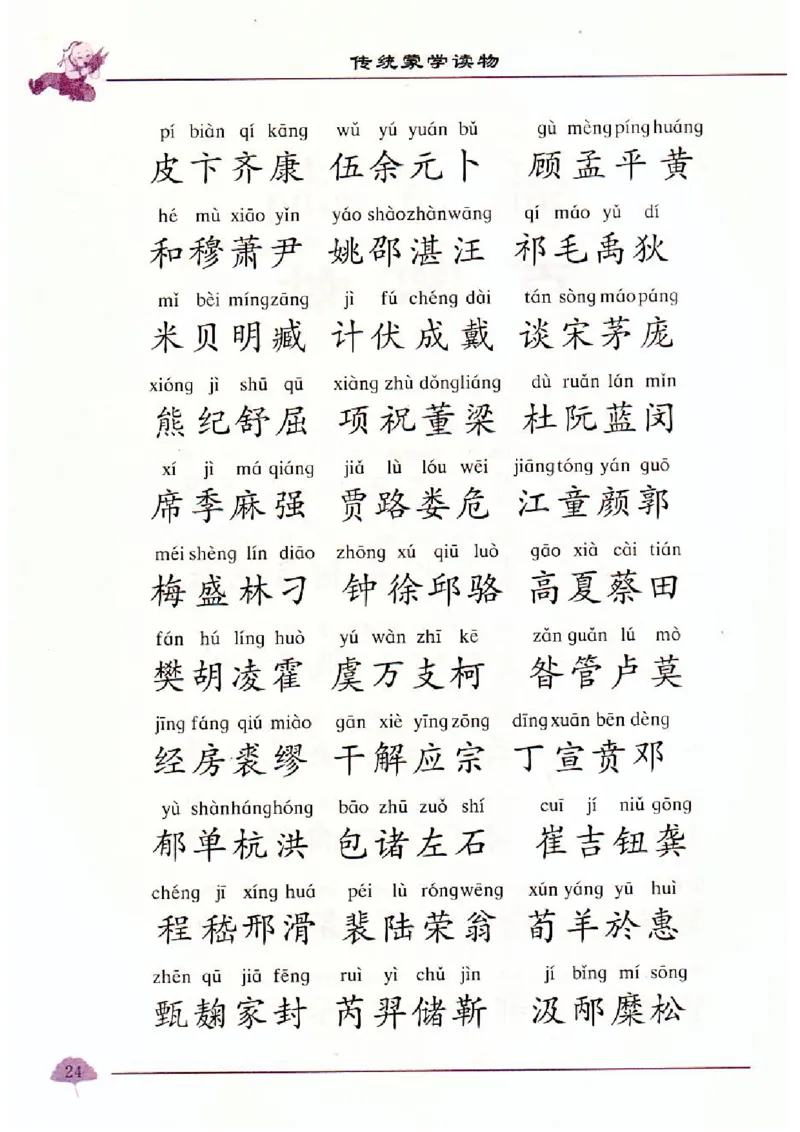 传统蒙学读物
pí biàn qí kāng wǔ yú yuán bǔ gù mèng píng huáng
皮卞齐康 伍余元卜 顾孟平黄
hé mù xiāo yǐn yáo shào zhàn wāng qí máo yǔ dí
和穆萧尹 姚邵湛汪 祁毛禹狄
mǐ bèi míng zāng jì fú chéng dài tán sòng máo páng
米贝明臧 计伏成戴 谈宋茅庞
xióng jì shū qū xiàng zhù dǒng liáng dù ruǎn lán mǐn
熊纪舒屈 项祝董梁 杜阮蓝闵
xí jì má qiáng jiǎ lù lóu wēi jiāng tóng yán guō
席季麻强 贾路娄危 江童颜郭
méi shèng lín diāo zhōng xú qiū luò gāo xià cài tián
梅盛林刁 钟徐邱骆 高夏蔡田
fán hú líng huò yú wàn zhī kē zǎn guǎn lú mò
樊胡凌霍 虞万支柯 昝管卢莫
jīng fáng qiú miào gān xiè yīng zōng dīng xuān bēn dèng
经房裘缪 干解应宗 丁宣贲邓
yù shàn háng hóng bāo zhū zuǒ shí cuī jí niǔ gōng
郁单杭洪 包诸左石 崔吉钮龚
chéng jī xíng huá péi lù róng wēng xún yáng yū huì
程嵇邢滑 裴陆荣翁 荀羊於惠
zhēn qū jiā fēng ruì yì chǔ jìn jí bǐng mí sōng
甄麹家封 芮羿储靳 汲邴糜松
24